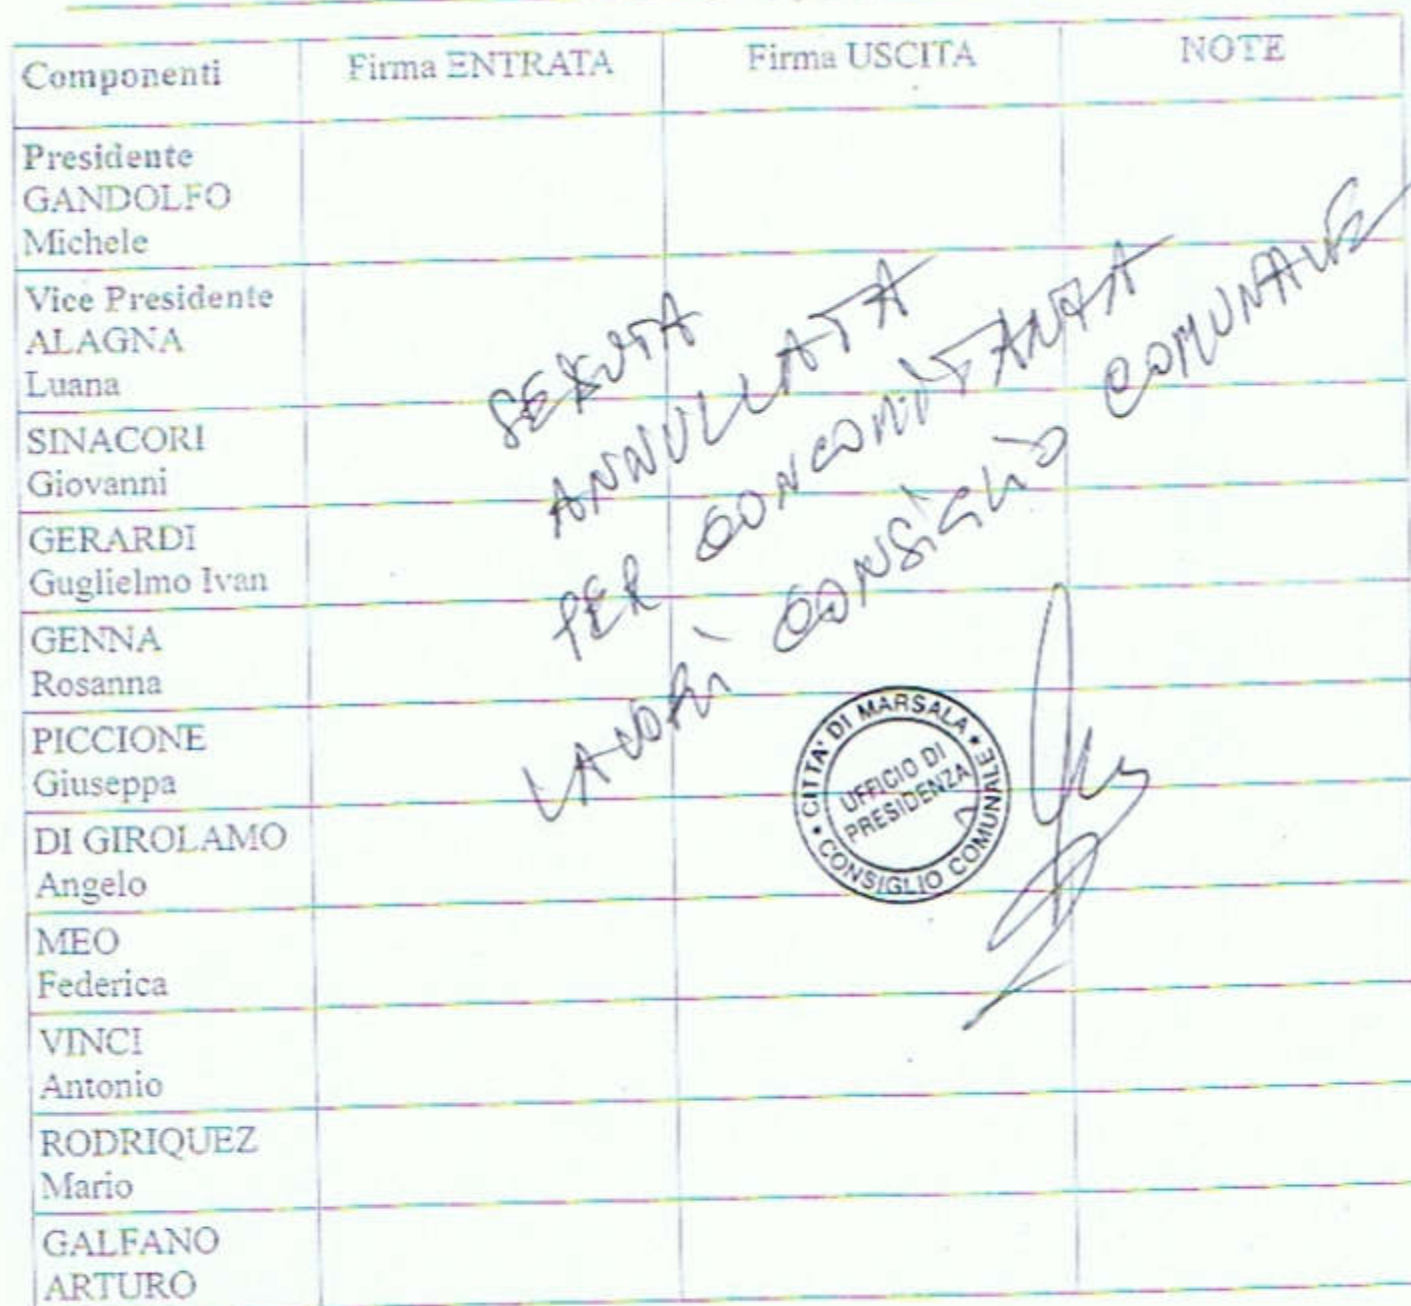 Componenti Firma ENTRATA Firma USCITA NOTE
Presidente
GANDOLFO
Michele
Vice Presidente
ALAGNA
Luana
SINACORI
Giovanni
GERARDI
Guglielmo Ivan
GENNA
Rosanna
PICCIONE
Giuseppa
DI GIROLAMO
Angelo
MEO
Federica
VINCI
Antonio
RODRIQUEZ
Mario
GALFANO
ARTURO
SEDUTA
ANNULLATA
PER CONCOMITANZA
LAVORI CONSIGLIO COMUNALE
CITTA' DI MARSALA
UFFICIO DI
PRESIDENZA
CONSIGLIO COMUNALE